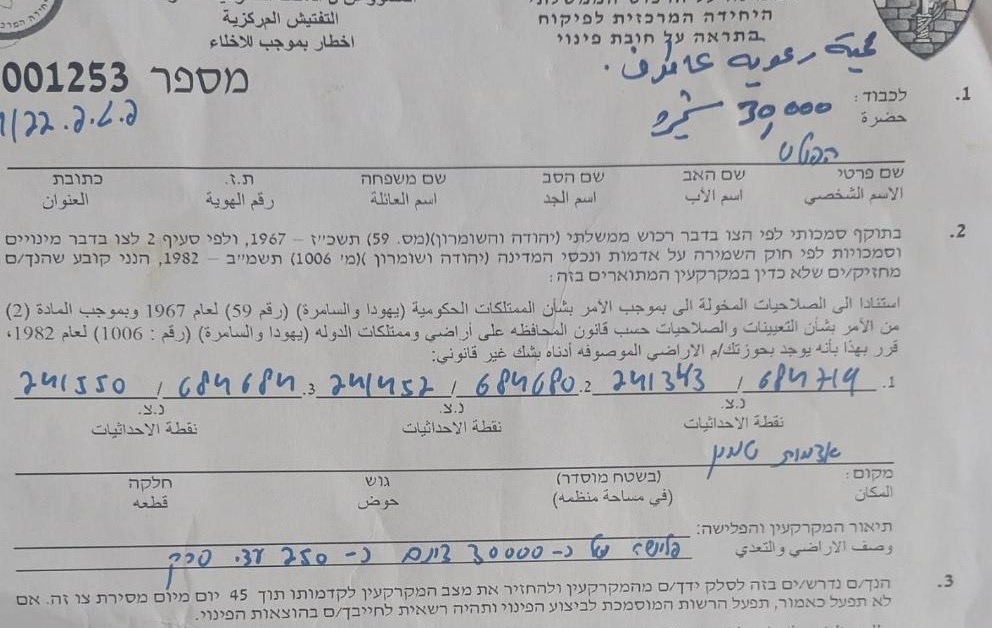 היחידה המרכזית לפיקוח
בתראה על חובת פינוי
התפتيש המרכزية
اخطار بموجب للاخلاء
מספר 001253
محمية رعوية
30,000
1. לכבוד:
حضرة
הפולש
שם פרטי שם האב שם הסב שם משפחה ת.ז. כתובת
الاسم الشخصي اسم الأب اسم الجد اسم العائلة رقم الهوية العنوان
2. בתוקף סמכותי לפי הצו בדבר רכוש ממשלתי (יהודה והשומרון)(מס. 59) תשכ״ז – 1967, ולפי סעיף 2 לצו בדבר מינויים
וסמכויות לפי חוק השמירה על אדמות ונכסי המדינה (יהודה ושומרון )(מ׳ 1006) תשמ״ב – 1982, הנני קובע שהנך/ם
מחזיק/ים שלא כדין במקרקעין המתוארים בזה:
استنادا الى الصلاحيات المخولة الى بموجب الأمر بشأن الممتلكات الحكومية (يهودا والسامرة) (رقم 59) لعام 1967 وبموجب المادة (2)
من الأمر بشأن التعيينات والصلاحيات حسب قانون المحافظه على أراضي وممتلكات الدوله (يهودا والسامرة) (رقم : 1006) لعام 1982،
قرر بهذا بأنه يوجد بحوزتك/م الاراضي الموصوفه أدناه بشك غير قانوني:
1. 684714 / 241343 2. 684680 / 241452 3. 684684 / 241550
נ.צ. נ.צ. נ.צ.
نقطة الاحداثيات نقطة الاحداثيات نقطة الاحداثيات
אדמות טמון
מקום: (בשטח מוסדר) גוש חלקה
المكان (في مساحة منظمه) حوض قطعه
תיאור המקרקעין והפלישה:
وصف الاراضي والتعدي פלישה של כ- 30000 דונם כ- 250 עצי סרק
3. הנך/ם נדרש/ים בזה לסלק ידך/ם מהמקרקעין ולהחזיר את מצב המקרקעין לקדמותו תוך 45 יום מיום מסירת צו זה. אם
לא תפעל כאמור, תפעל הרשות המוסמכת לביצוע הפינוי ותהיה רשאית לחייבך/ם בהוצאות הפינוי.